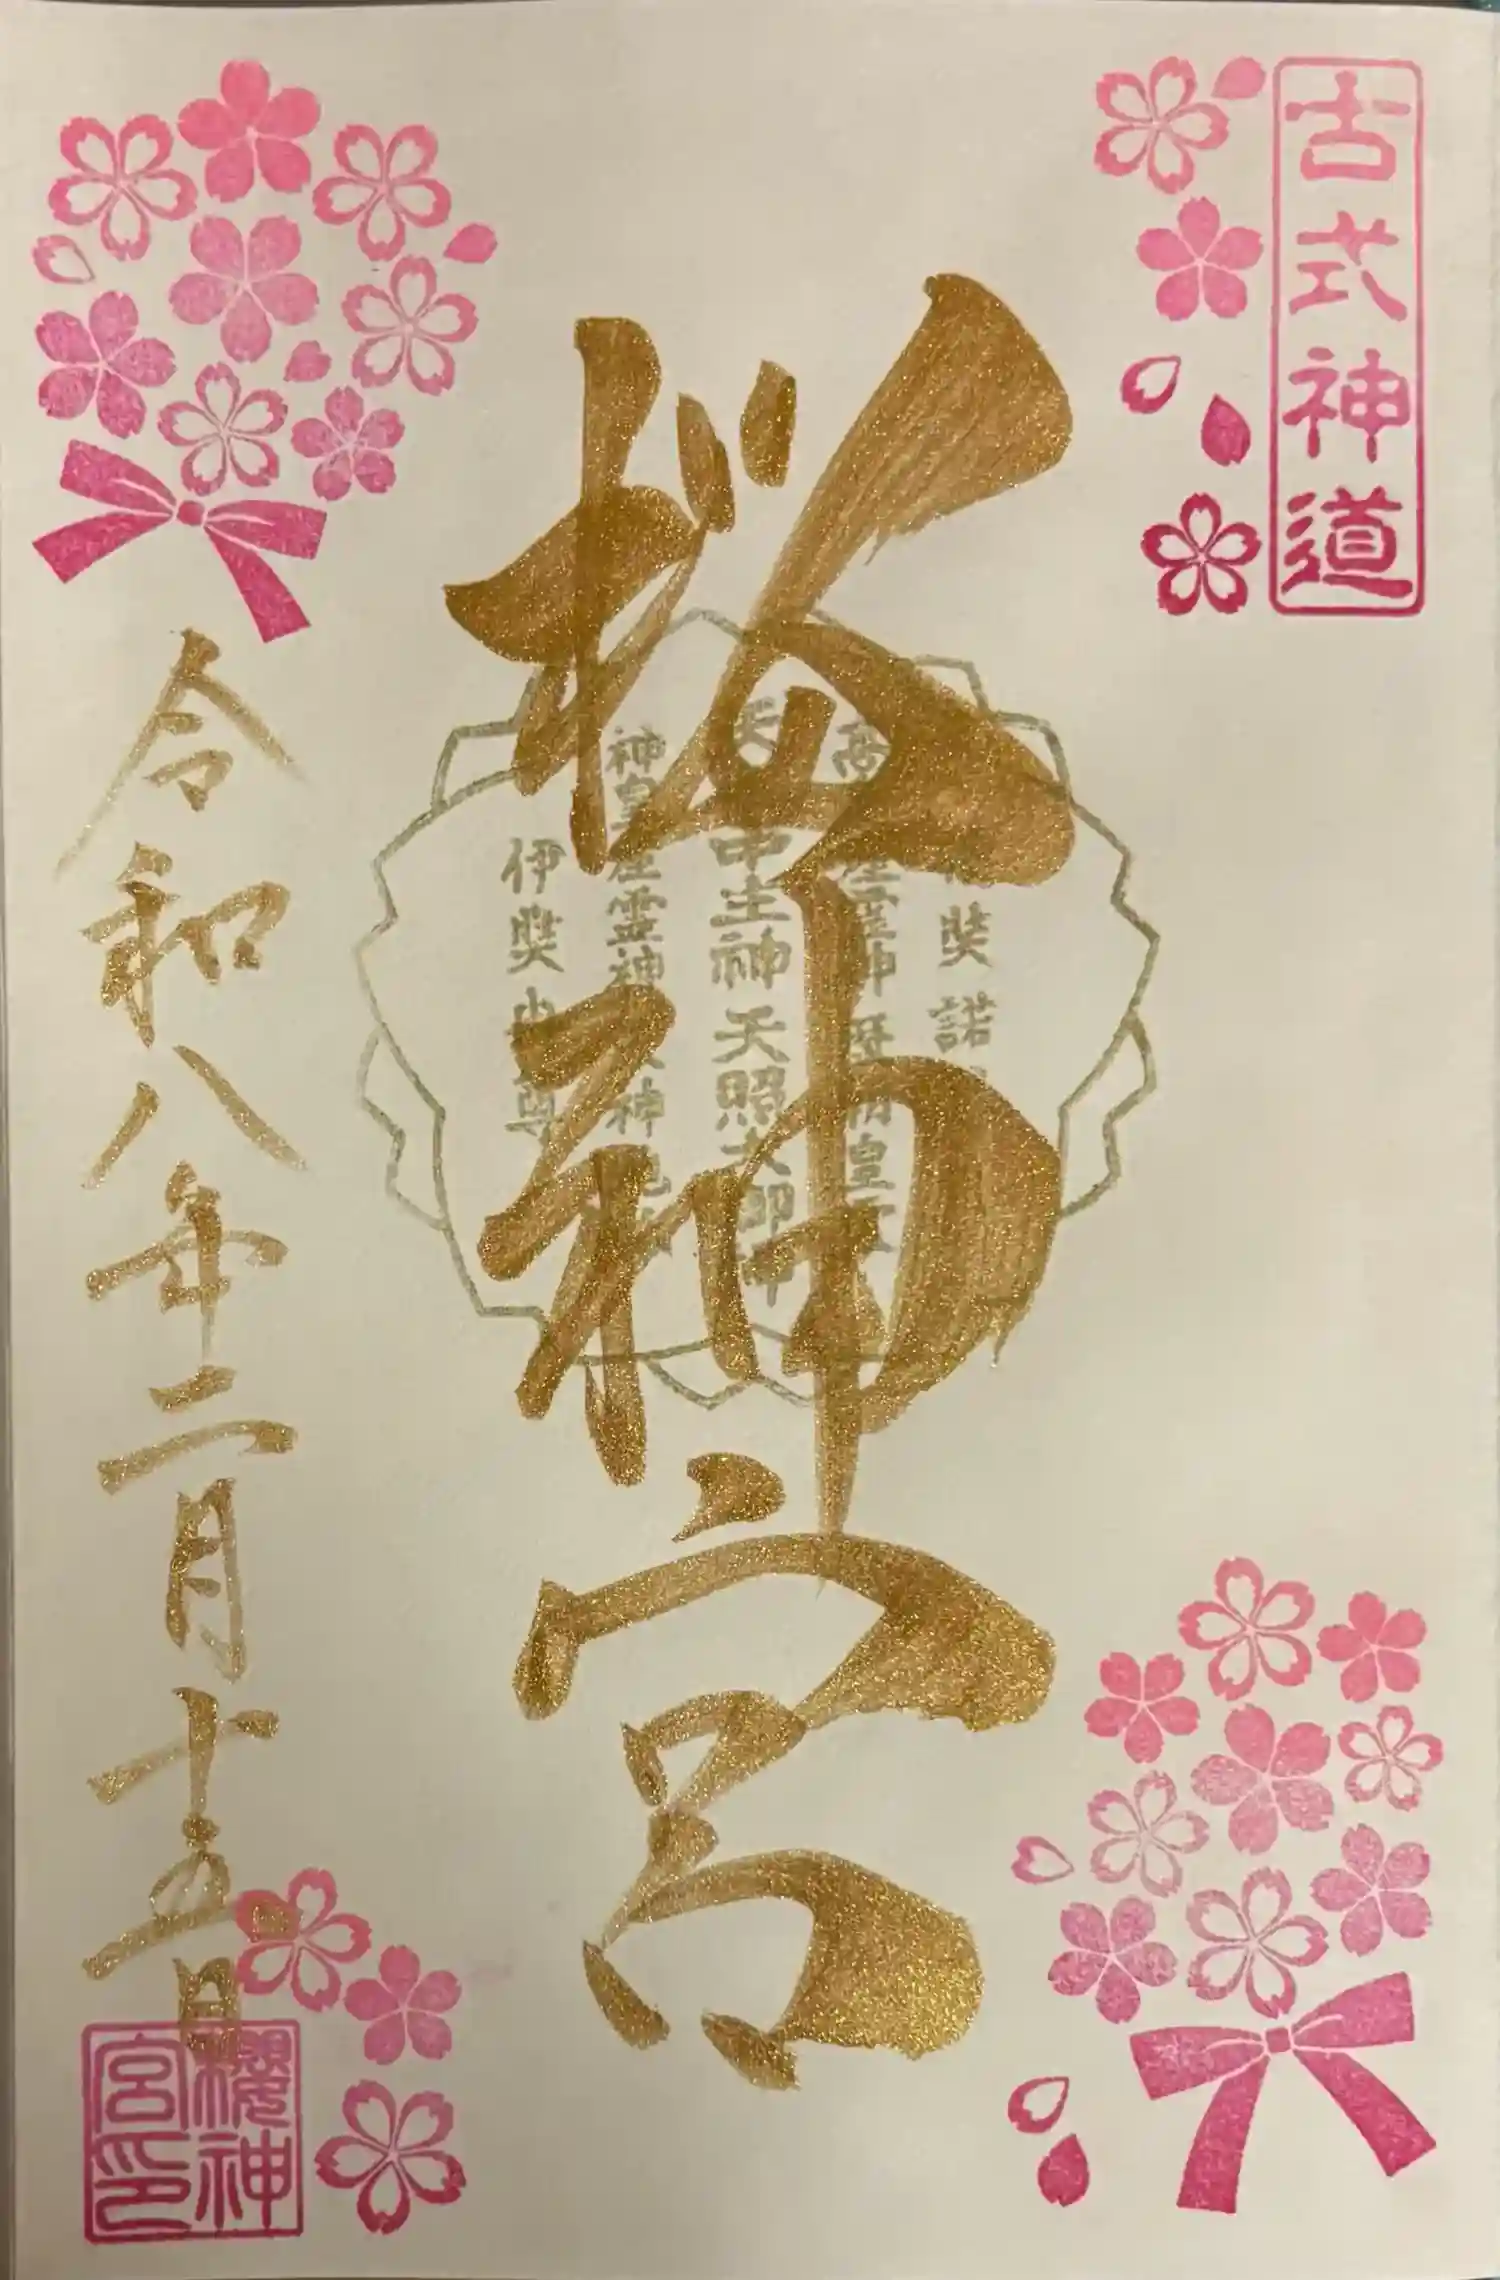 古式神道
桜神宮
伊弉諾
高
産霊神
天
中主神 天照大御神
神皇産霊神
神
伊弉
尊
令和八年二月十五日
櫻神
宮印